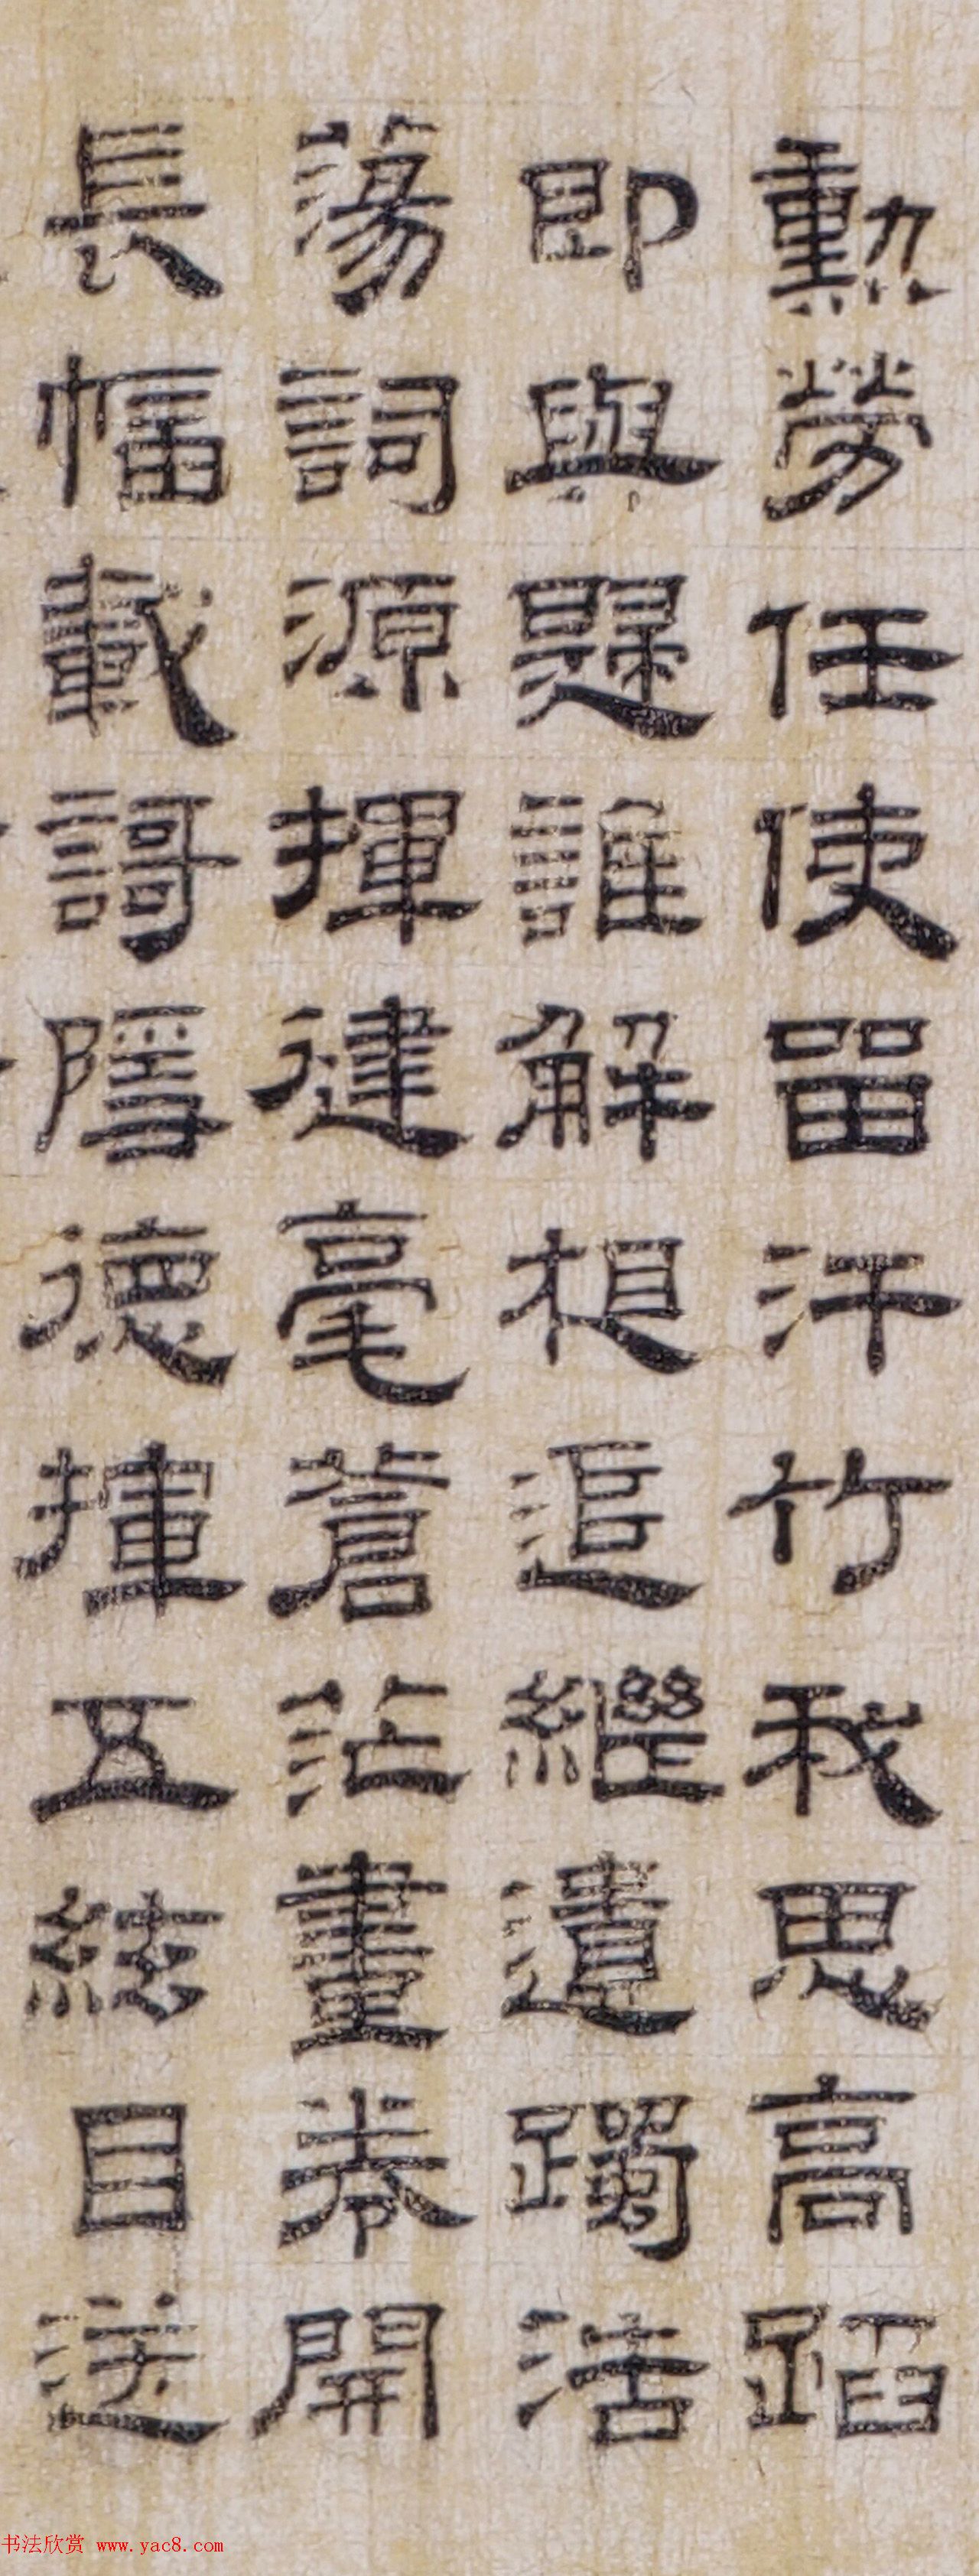 勳勞任使留汗竹我思高蹈
即與題誰解相追繼遺躅浩
蕩詞源揮健毫蒼茫畫卷開
長幅載謌隱德揮五絃目送
书法欣赏 www.yac8.com